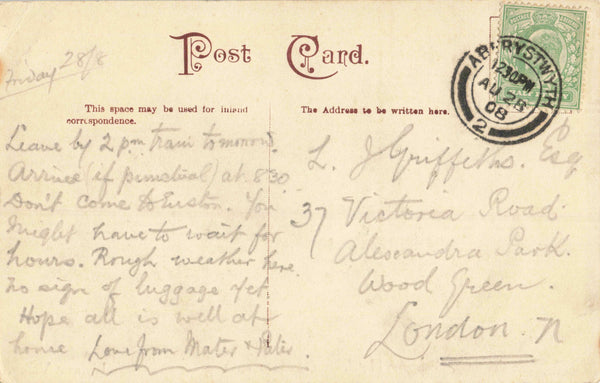 Friday 28/8
Post Card.
This space may be used for inland
correspondence.
The Address to be written here.
ABERYSTWYTH
12.30PM
AU 28
08
2
Leave by 2 pm train tomorrow.
Arrive (if punctual) at 8.30
Don't come to Euston. You
might have to wait for
hours. Rough weather here.
No sign of luggage yet
Hope all is well at
home Love from Mater & Pater.
L. J Griffiths. Esq
37 Victoria Road.
Alexandra Park.
Wood Green.
London. N